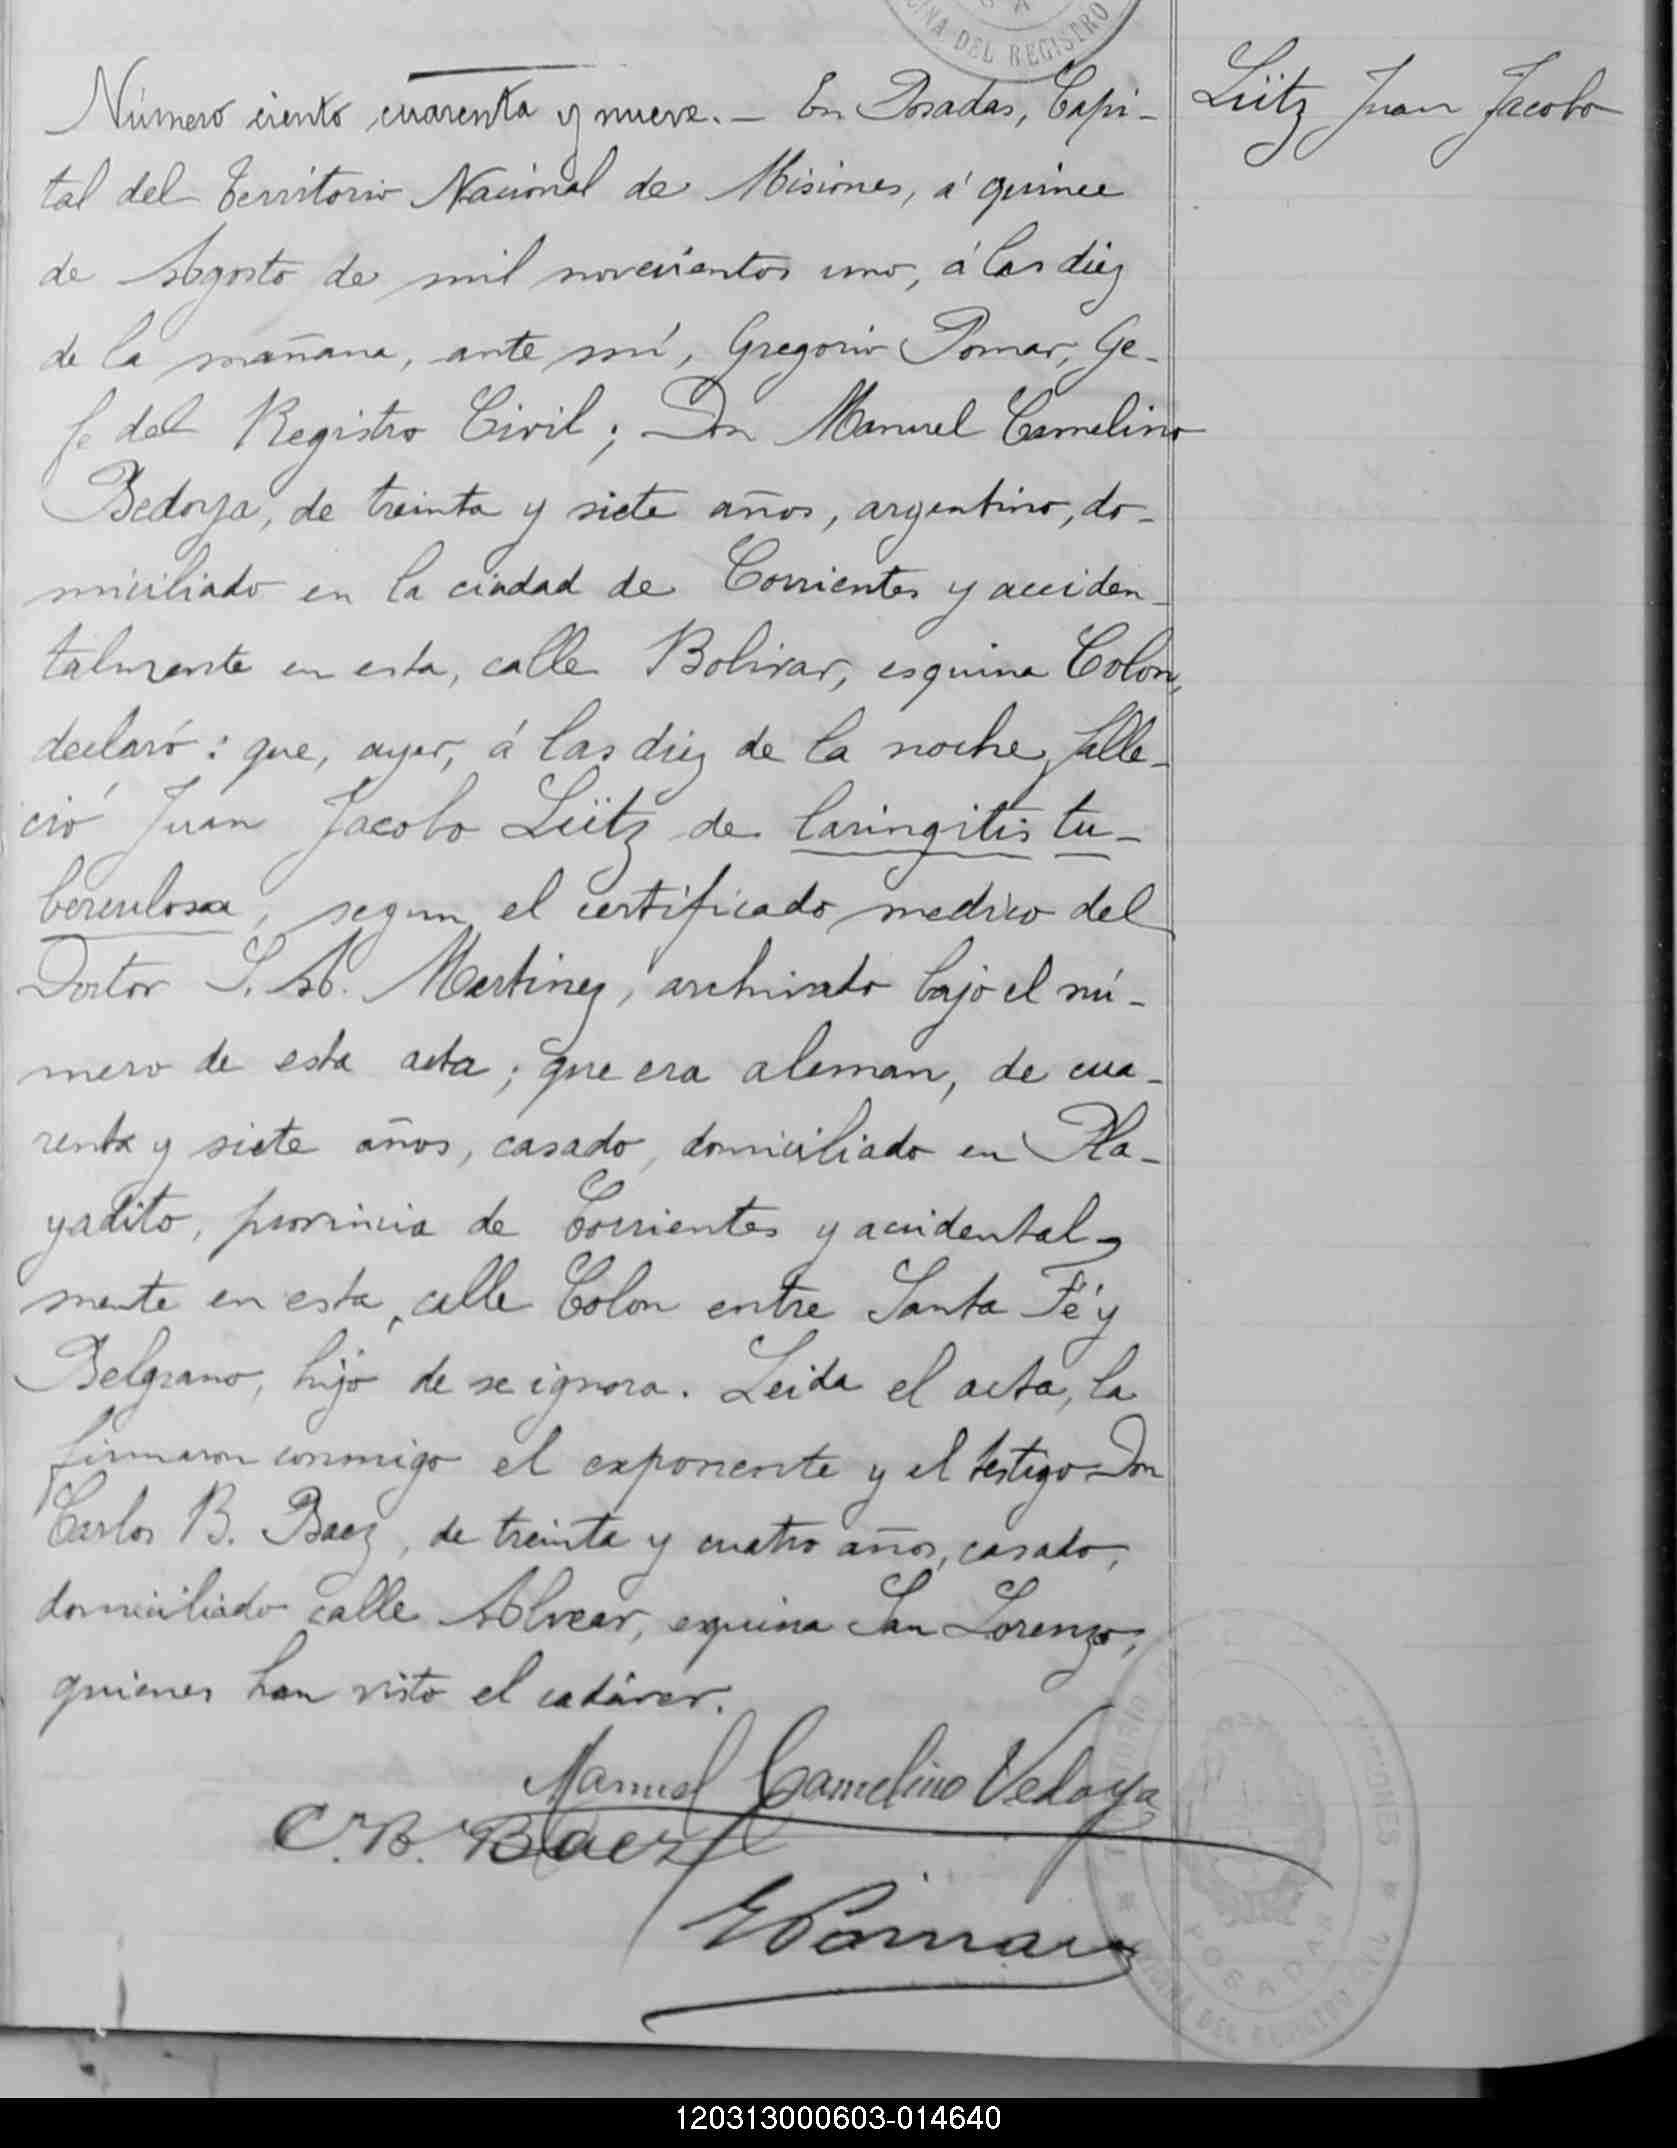 OFICINA DEL REGISTRO
Lütz Juan Jacobo
Número ciento cuarenta y nueve. — En Posadas, Capi-
tal del Territorio Nacional de Misiones, á quince
de Agosto de mil novecientos uno, á las diez
de la mañana, ante mí, Gregorio Pomar, Ge-
fe del Registro Civil; Don Manuel Camelino
Bedoya, de treinta y siete años, argentino, do-
miciliado en la ciudad de Corrientes y acciden-
talmente en esta, calle Bolivar, esquina Colon,
declaró: que, ayer, á las diez de la noche, falle-
ció Juan Jacobo Lütz de laringitis tu-
berculosa, segun el certificado medico del
Doctor S. A. Martinez, archivado bajo el nú-
mero de esta acta; que era aleman, de cua-
renta y siete años, casado, domiciliado en Pla-
yadito, provincia de Corrientes y accidental-
mente en esta, calle Colon entre Santa Fé y
Belgrano, hijo de se ignora. Leida el acta, la
firmaron conmigo el exponente y el testigo Don
Carlos B. Baez, de treinta y cuatro años, casado,
domiciliado calle Alvear, esquina San Lorenzo,
quienes han visto el cadáver.
Manuel Camelino Vedoya
C. B. Baez
GPomar
POSADAS
120313000603-014640